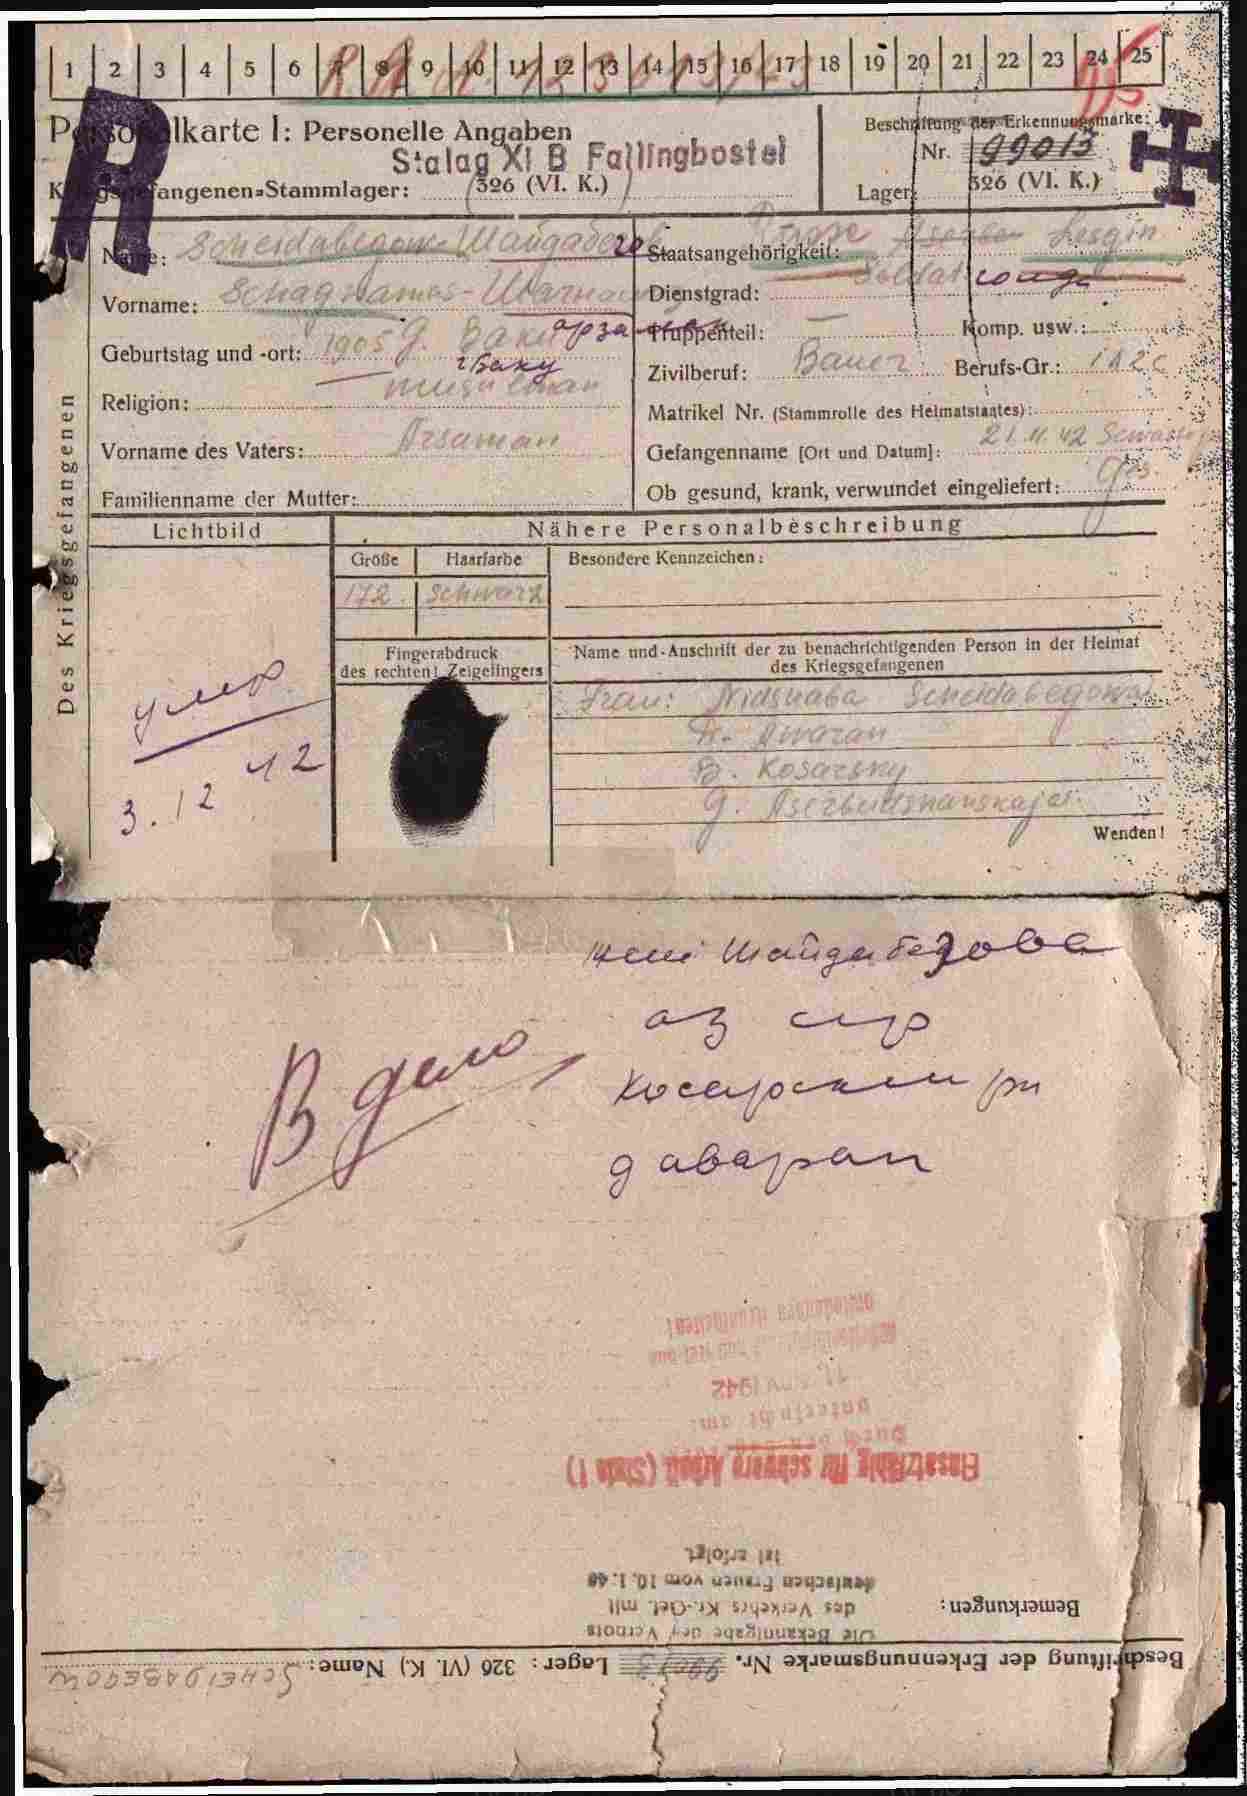 1 2 3 4 5 6 7 8 9 10 11 12 13 14 15 16 17 18 19 20 21 22 23 24 25
R
Personalkarte I: Personelle Angaben
Stalag XI B Fallingbostel
Kriegsgefangenen=Stammlager: (326 (VI. K.))
Beschriftung der Erkennungsmarke:
Nr. 99013
Lager: 326 (VI. K.)
Des Kriegsgefangenen
Name: Scheidabegow Шайдабегов
Vorname: Schagnamas-
Geburtstag und -ort: 1905 g. Baku
г Баку
Religion: musulman
Vorname des Vaters: Arsaman
Familienname der Mutter:
Staatsangehörigkeit: Lesgin
Dienstgrad: Soldat солдат
Truppenteil: — Komp. usw.:
Zivilberuf: Bauer Berufs-Gr.: 1A2c
Matrikel Nr. (Stammrolle des Heimatstaates):
Gefangenname [Ort und Datum]: 21.11.42 Sewastop
Ob gesund, krank, verwundet eingeliefert: ges.
Lichtbild
умер
3.12 42
Nähere Personalbeschreibung
Größe Haarfarbe Besondere Kennzeichen:
172. schwarz
Fingerabdruck
des rechten! Zeigefingers
Name und Anschrift der zu benachrichtigenden Person in der Heimat
des Kriegsgefangenen
Frau: Nidshaba Scheidabegowa
D. Awaran
B. Kosarsky
g. Aserbeidshanskaja
Wenden!
жена Шайдабегова
аз сср
Косарский рн
д аваран
В дело
Beschriftung der Erkennungsmarke Nr. 99013 Lager: 326 (VI. K) Name: SCHEIDABEGOW
Bemerkungen:
Die Bekanntgabe des Verbots
des Verkehrs Kr.-Gef. mit
deutschen Frauen vom 10.1.40
ist erfolgt.
Einsatzfähig für schwere Arbeit (Stufe I)
untersucht am:
1942
ansteckenden Krankheiten!